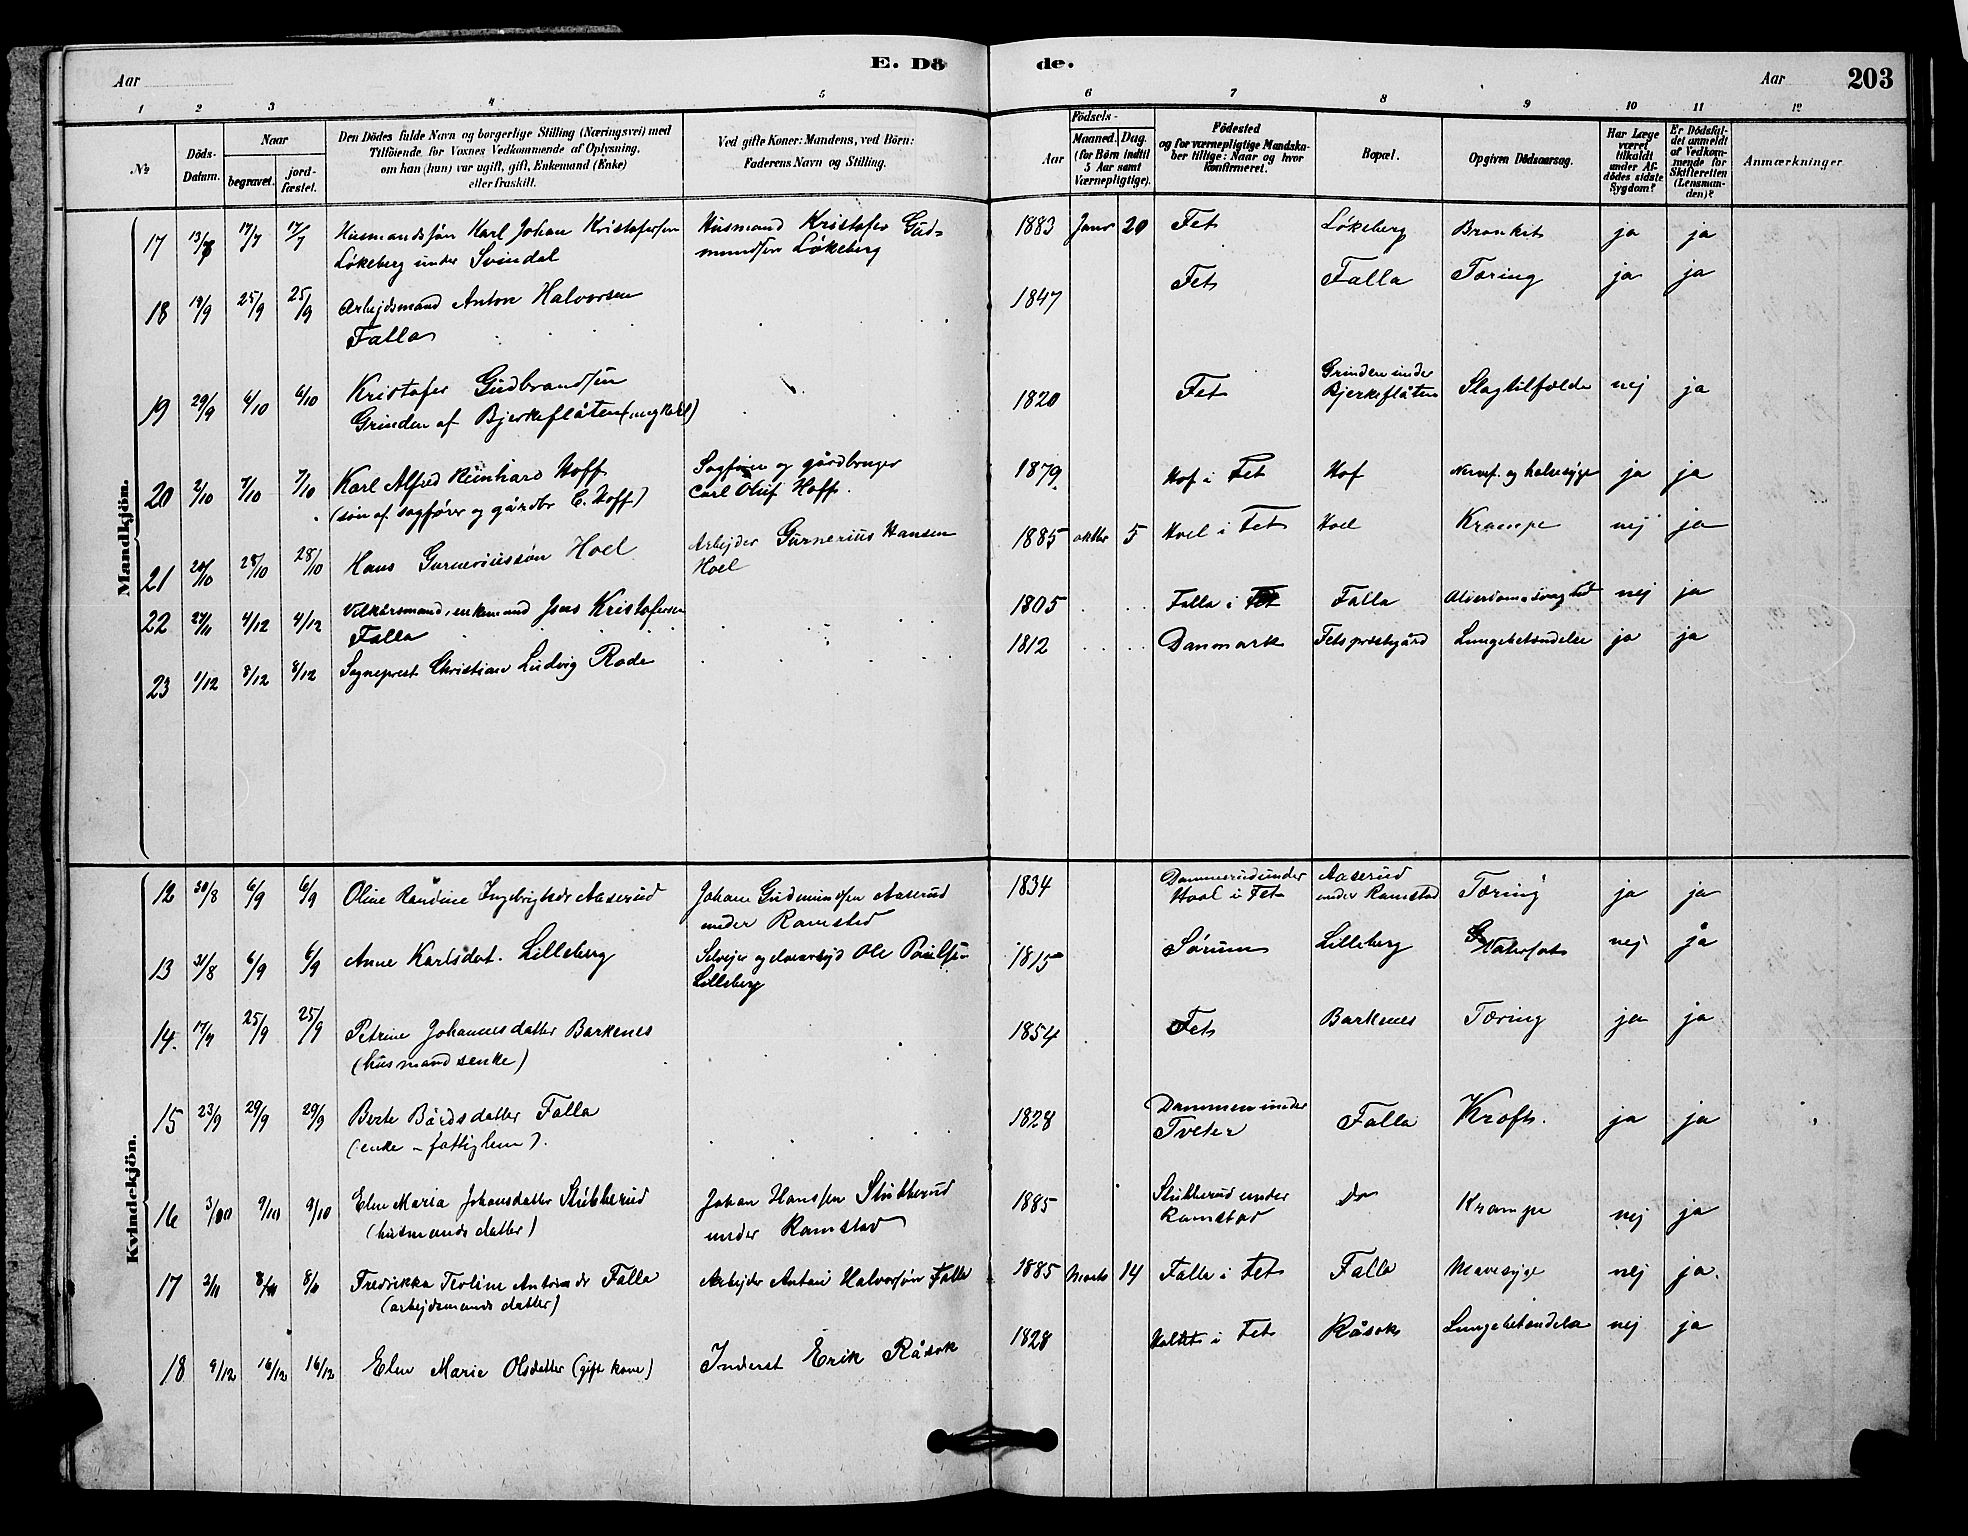 E. Dö de.
Aar
Aar
203
1 2 3 4 5 6 7 8 9 10 11 12
№
Döds-Datum.
Naar
begravet.
jord-fæstet.
Den Dödes fulde Navn og borgerlige Stilling (Næringsvei) med
Tilföiende, for Voxnes Vedkommende af Oplysning,
om han (hun) var ugift, gift, Enkemand (Enke)
eller fraskilt.
Ved gifte Koner: Mandens, ved Börn:
Faderens Navn og Stilling.
Födsels-
Aar
Maaned. Dag.
(for Börn indtil
5 Aar samt
Værnepligtige).
Födested
og for værnepligtige Mandska-
ber tillige: Naar og hvor
konfirmeret.
Bopæl.
Opgiven Dödsaarsag.
Har Læge
været
tilkaldt
under Af-
dödes sidste
Sygdom?
Er Dödsfal-
det anmeldt
af Vedkom-
mende for
Skifteretten
(Lensman-
den)?
Anmærkninger
Mandkjön.
17 13/7 17/7 17/7 Husmandssøn Karl Johan Kristofersen Husmand Kristofer Gud- 1883 Janr 20 Fet Løkeberg Bronkit ja ja
Løkeberg under Svindal mundsen Løkeberg
18 19/9 25/9 25/9 Arbejdsmand Anton Halvorsen 1847 Fet Falla Tæring ja ja
Falla
19 29/9 6/10 6/10 Kristofer Gudbrandsen 1820 Fet Grinden under Bjerkeflåten Slagtilfælde nej ja
Grinden af Bjerkeflåten (ungkarl)
20 2/10 7/10 7/10 Karl Alfred Reinhard Hoff Sagfører og gårdbruger 1879 Hof i Fet Hof Nervef. og halsesyge ja ja
(søn af sagfører og gårdbr C. Hoff) Carl Oluf Hoff.
21 20/10 28/10 28/10 Hans Gurneriussøn Hoel Arbejder Gurnerius Hansen 1885 oktbr 5 Hoel i Fet Hoel Krampe nej ja
Hoel
22 27/11 4/12 4/12 Vilkårsmand, enkemand Jens Kristofersen 1805 Falla i Fet Falla Alderdomssvaghed nej ja
Falla
23 1/12 8/12 8/12 Sogneprest Christian Ludvig Rode 1812 Danmark Fets præstegård Lungebetændelse ja ja
Kvindekjön.
12 30/8 6/9 6/9 Oline Randine Ingebrigtsdr Aaserud Johan Gudmundsen Aaserud 1834 Dammerud under Hval i Fet Aaserud under Ramstad Tæring ja ja
under Ramstad
13 31/8 6/9 6/9 Anne Karlsdat. Lillsberg Selvejer Ole Paulsen 1815 Sørum Lilleberg nej ja
Lillsberg
14. 17/9 25/9 25/9 Petrine Johannesdatter Barkenes 1854 Fet Barkenes Tæring ja ja
(husmandsenke)
15 23/9 29/9 29/9 Berte Bårdsdatter Falla 1828 Dammen under Tveter Falla Kræft. ja ja
(enke – fattiglem).
16 3/10 9/10 9/10 Elen Maria Johansdatter Stubberud Johan Hanssen Stubberud 1885 Stubberud under Ramstad Do Krampe nej ja
(husmands datter) under Ramstad
17 3/11 8/11 8/11 Fredrikka Teoline Antonsdr Falla Arbejder Anton Halvorsøn Falla 1885 Marts 14 Falla i Fet Falla Mavesyge nej ja.
(arbejdsmands datter)
18 9/12 16/12 16/12 Elen Marie Olsdatter (gift kone) Inderst Erik Råsok 1828 i Fet Råsok Lungebetændelse nej ja